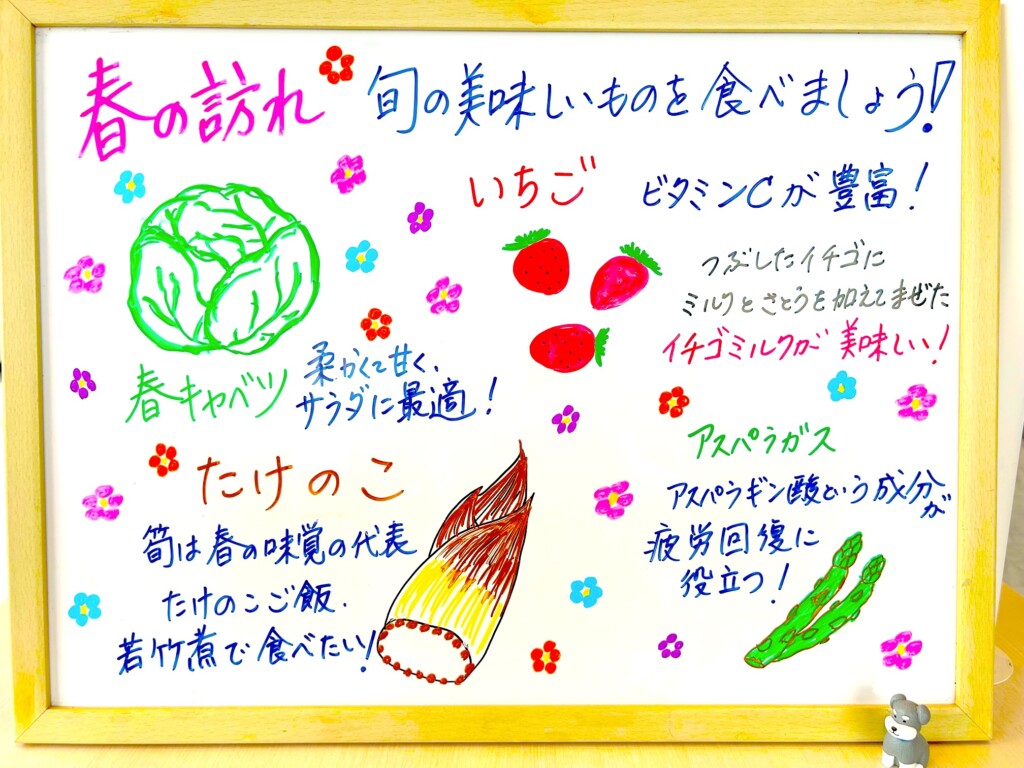 春の訪れ 旬の美味しいものを食べましょう!
いちご
ビタミンCが豊富!
つぶしたイチゴに
ミルクとさとうを加えてまぜた
イチゴミルクが美味しい!
春キャベツ
柔かくて甘く、
サラダに最適!
たけのこ
筍は春の味覚の代表
たけのこご飯、
若竹煮で食べたい!
アスパラガス
アスパラギン酸という成分が
疲労回復に
役立つ!